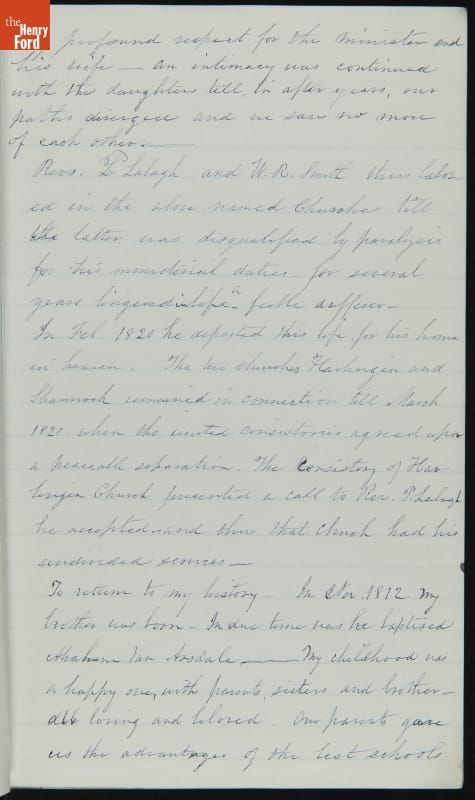 the
Henry
Ford
profound respect for the minister and
his wife — an intimacy was continued
with the daughters till, in after years, our
paths diverged and we saw no more
of each other —
Revs. P Labagh and W. R. Smith thus labor
ed in the above named Churches till
the latter was disqualified by paralysis
for his ministerial duties — for several
years lingered in life a feeble sufferer —
In Feb 1820 he departed this life for his home
in heaven. The two churches Harlingen and
Shannock remained in connection till March
1821 when the united consistories agreed upon
a peaceable separation. The Consistory of Har
lingen Church presented a call to Rev. P Labagh
he accepted — and thus that church had his
undivided services —
To return to my history — In Nov. 1812 my
brother was born — In due time was he baptised
Abraham Van Arsdale — My childhood was
a happy one, with parents, sisters and brother —
all loving and beloved. Our parents gave
us the advantages of the best schools